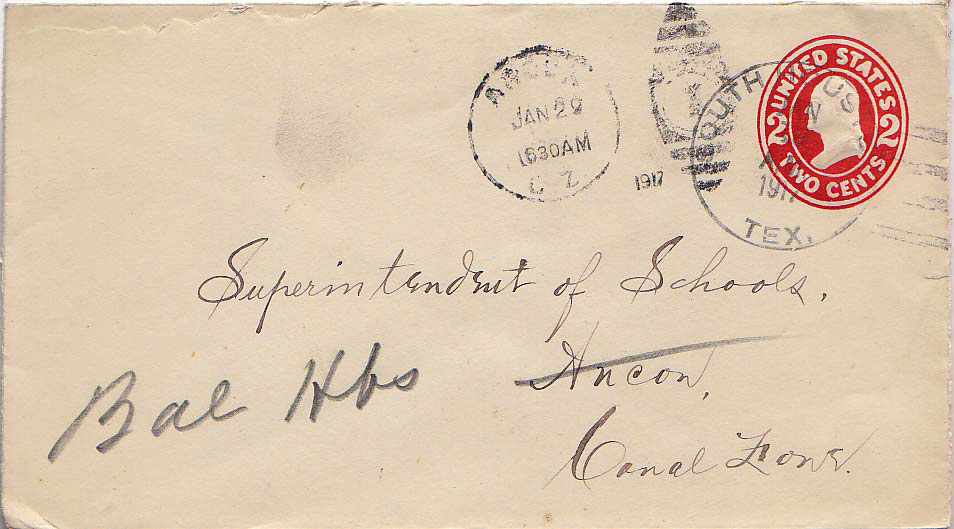 ANCON
JAN 29
630AM
C. Z.
1917
SOUTH
TEX.
1917
UNITED STATES
2 2
TWO CENTS
Superintendent of Schools.
Ancon,
Canal Zone.
Bal Hbs